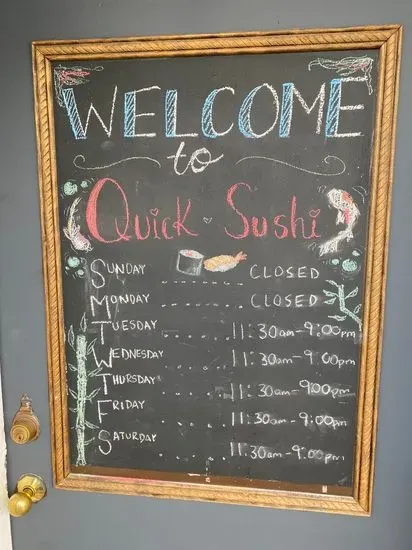 WELCOME
to
Quick Sushi
SUNDAY ........... CLOSED
MONDAY ........... CLOSED
TUESDAY ........... 11:30am-9:00pm
WEDNESDAY ........... 11:30am-9:00pm
THURSDAY ........... 11:30am-9:00pm
FRIDAY ........... 11:30am-9:00pm
SATURDAY ........... 11:30am-9:00pm